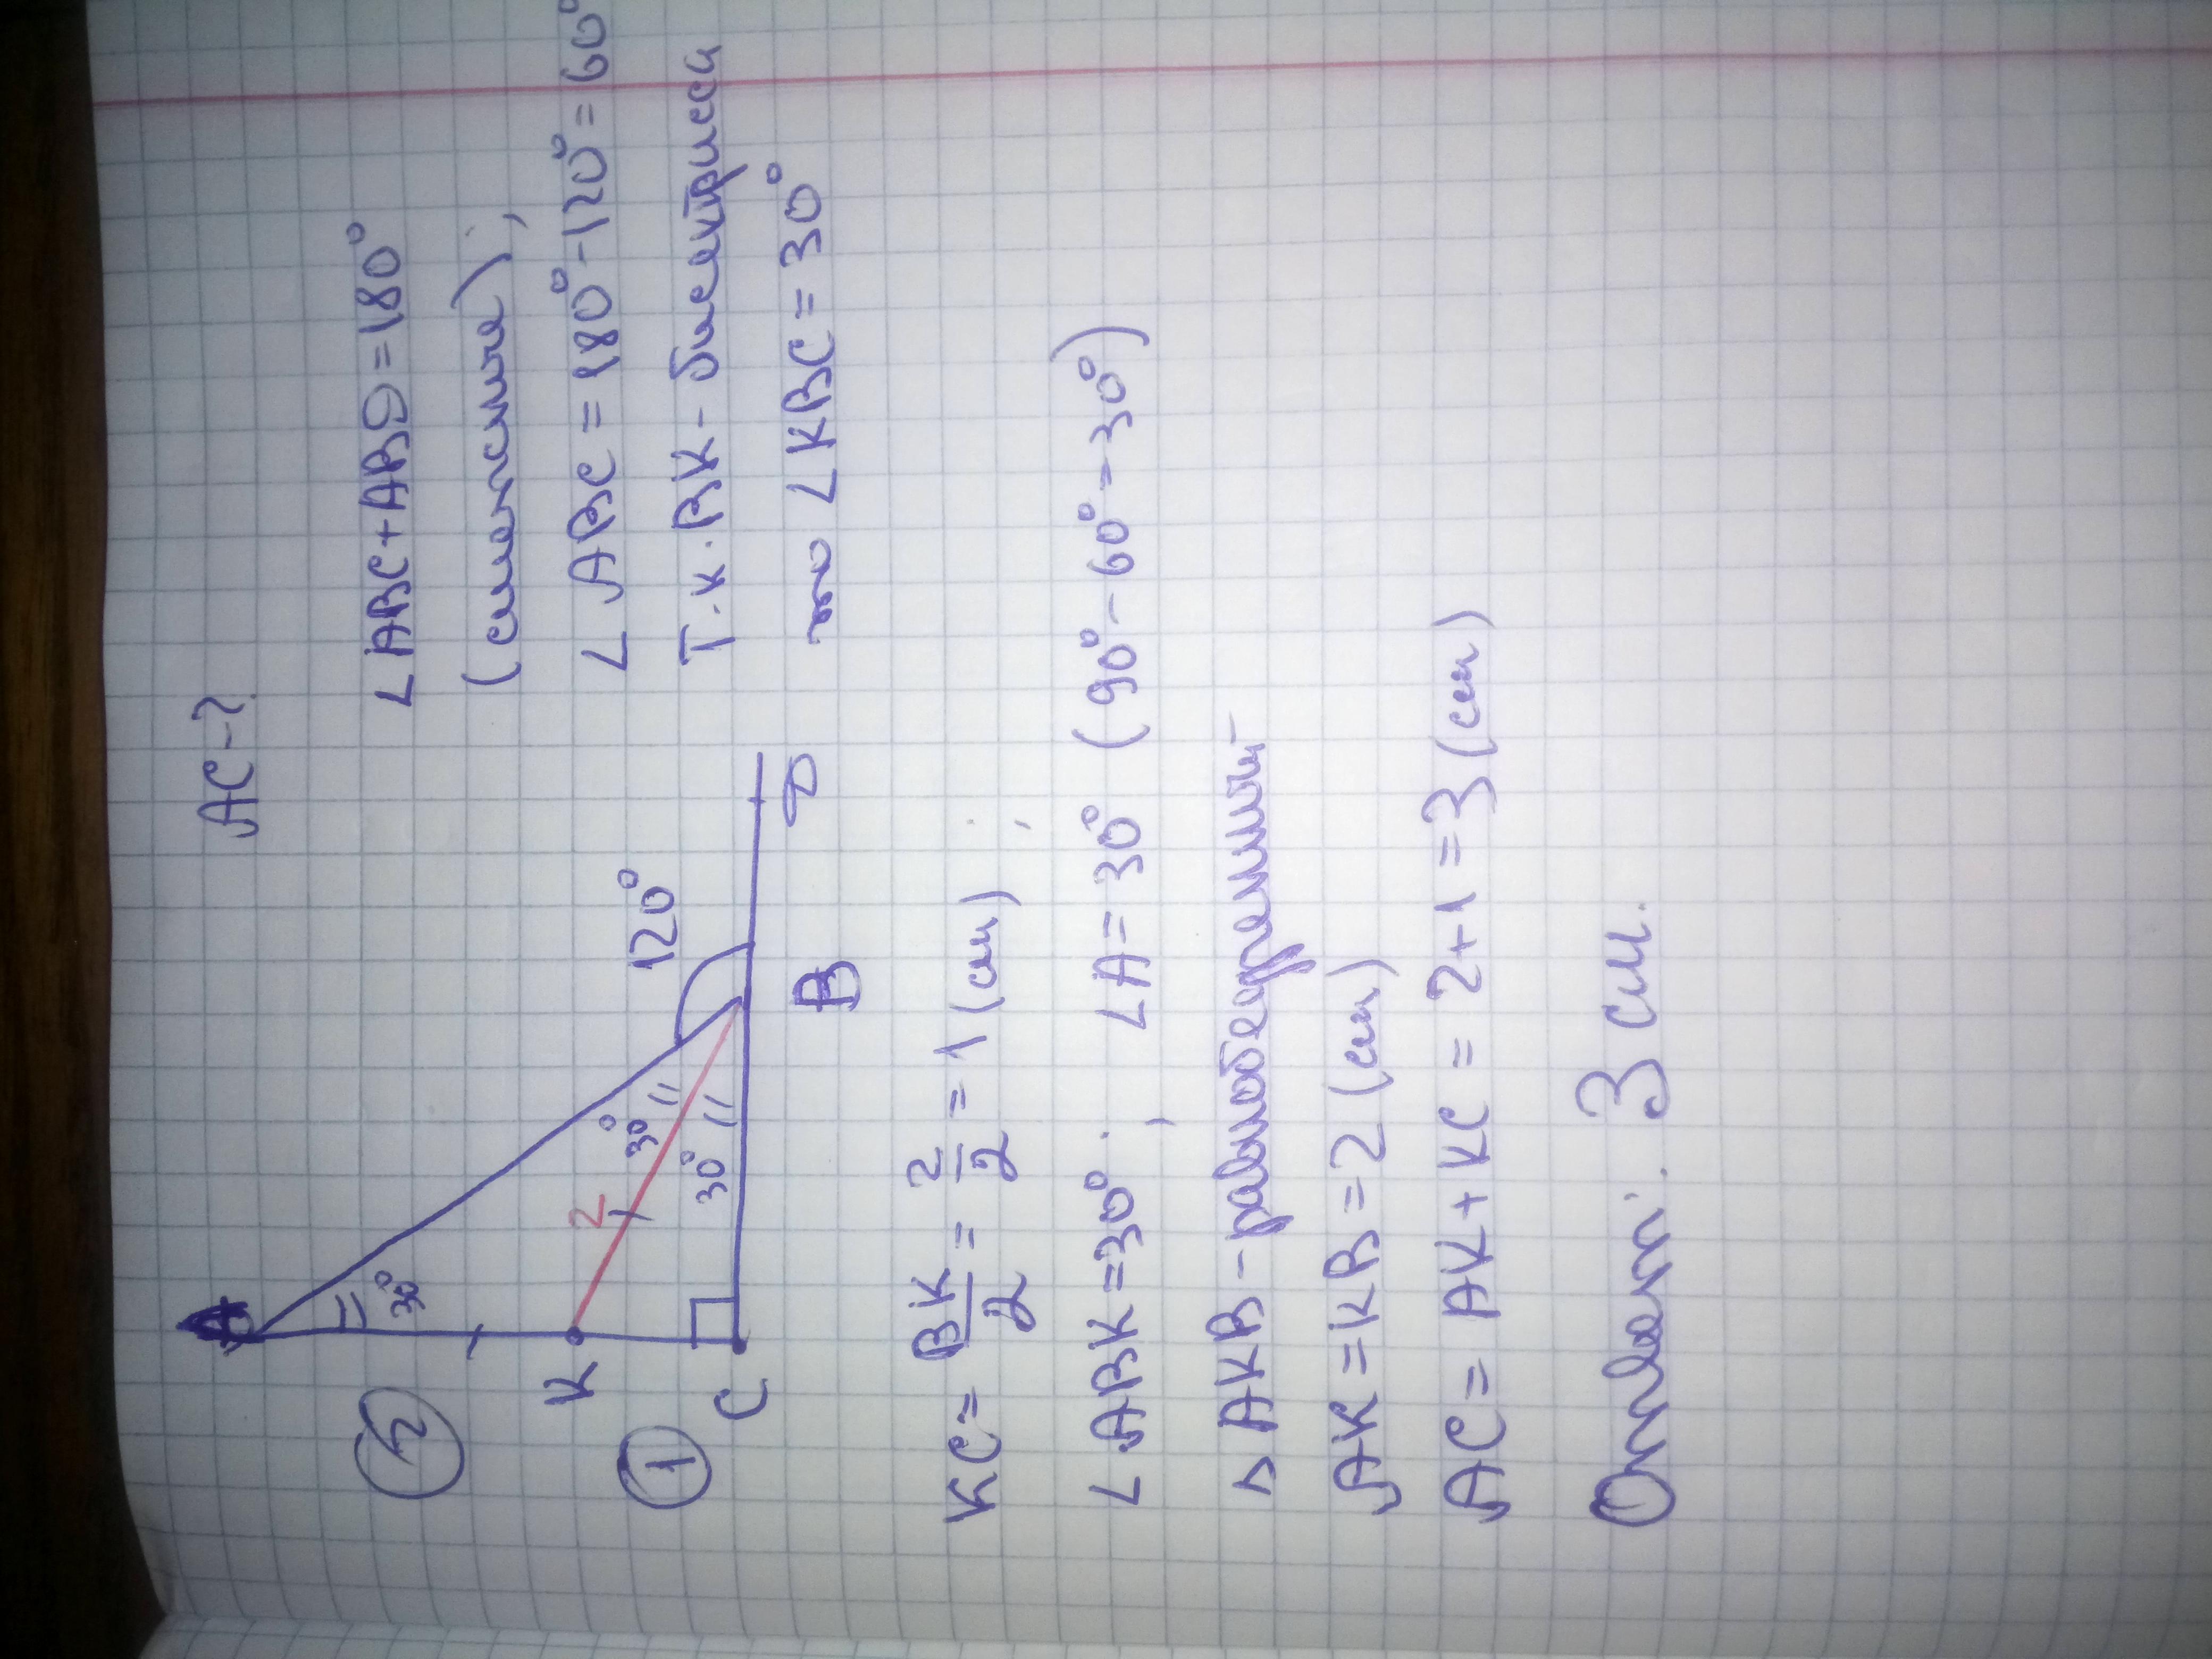 AC-?
∠ABC+ABD=180°
(смежные);
∠ABC=180°-120°=60°
Т.к. BK-биссектриса
то ∠KBC=30°
A
30°
2
30°
30°
120°
2
K
1
C
B
D
KC= BK/2 = 2/2 =1 (см);
∠ABK=30°; ∠A=30° (90°-60°=30°)
△AKB-равнобедренный
AK=KB=2 (см)
AC=AK+KC=2+1=3(см)
Ответ: 3 см.